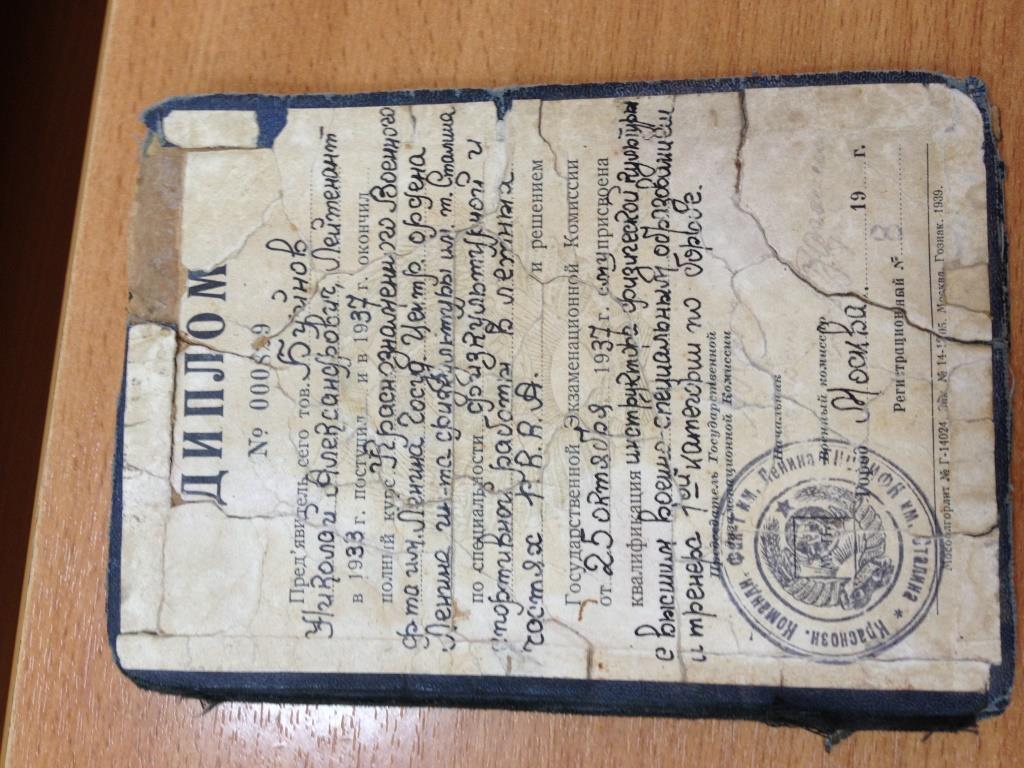 ДИПЛОМ
№ 000699
Пред'явитель сего тов. Буйнов
Николай Александрович, Лейтенант
в 1933 г. поступил и в 1937 г. окончил
полный курс Краснознаменного Военного
ф-та им. Ленина Госуд. Центр. ордена
Ленина ин-та физкультуры им. т. Сталина
по специальности физкультурной и
спортивной работы в летных
частях Р.К.К.А. и решением
Государственной Экзаменационной Комиссии
от 25 октября 1937 г. ему присвоена
квалификация инструктора физической культуры
с высшим военно-специальным образованием
и тренера 1-ой категории по борьбе.
Председатель Государственной
Экзаменационной Комиссии
Начальник
Военный комиссар
Город Москва 19 г.
Регистрационный № 8
Мособлгорлит № Г-14024 Москва. Гознак. 1939.
Краснозн. Команд. Фак-т им. Ленина ГЦОЛИФК им. Сталина